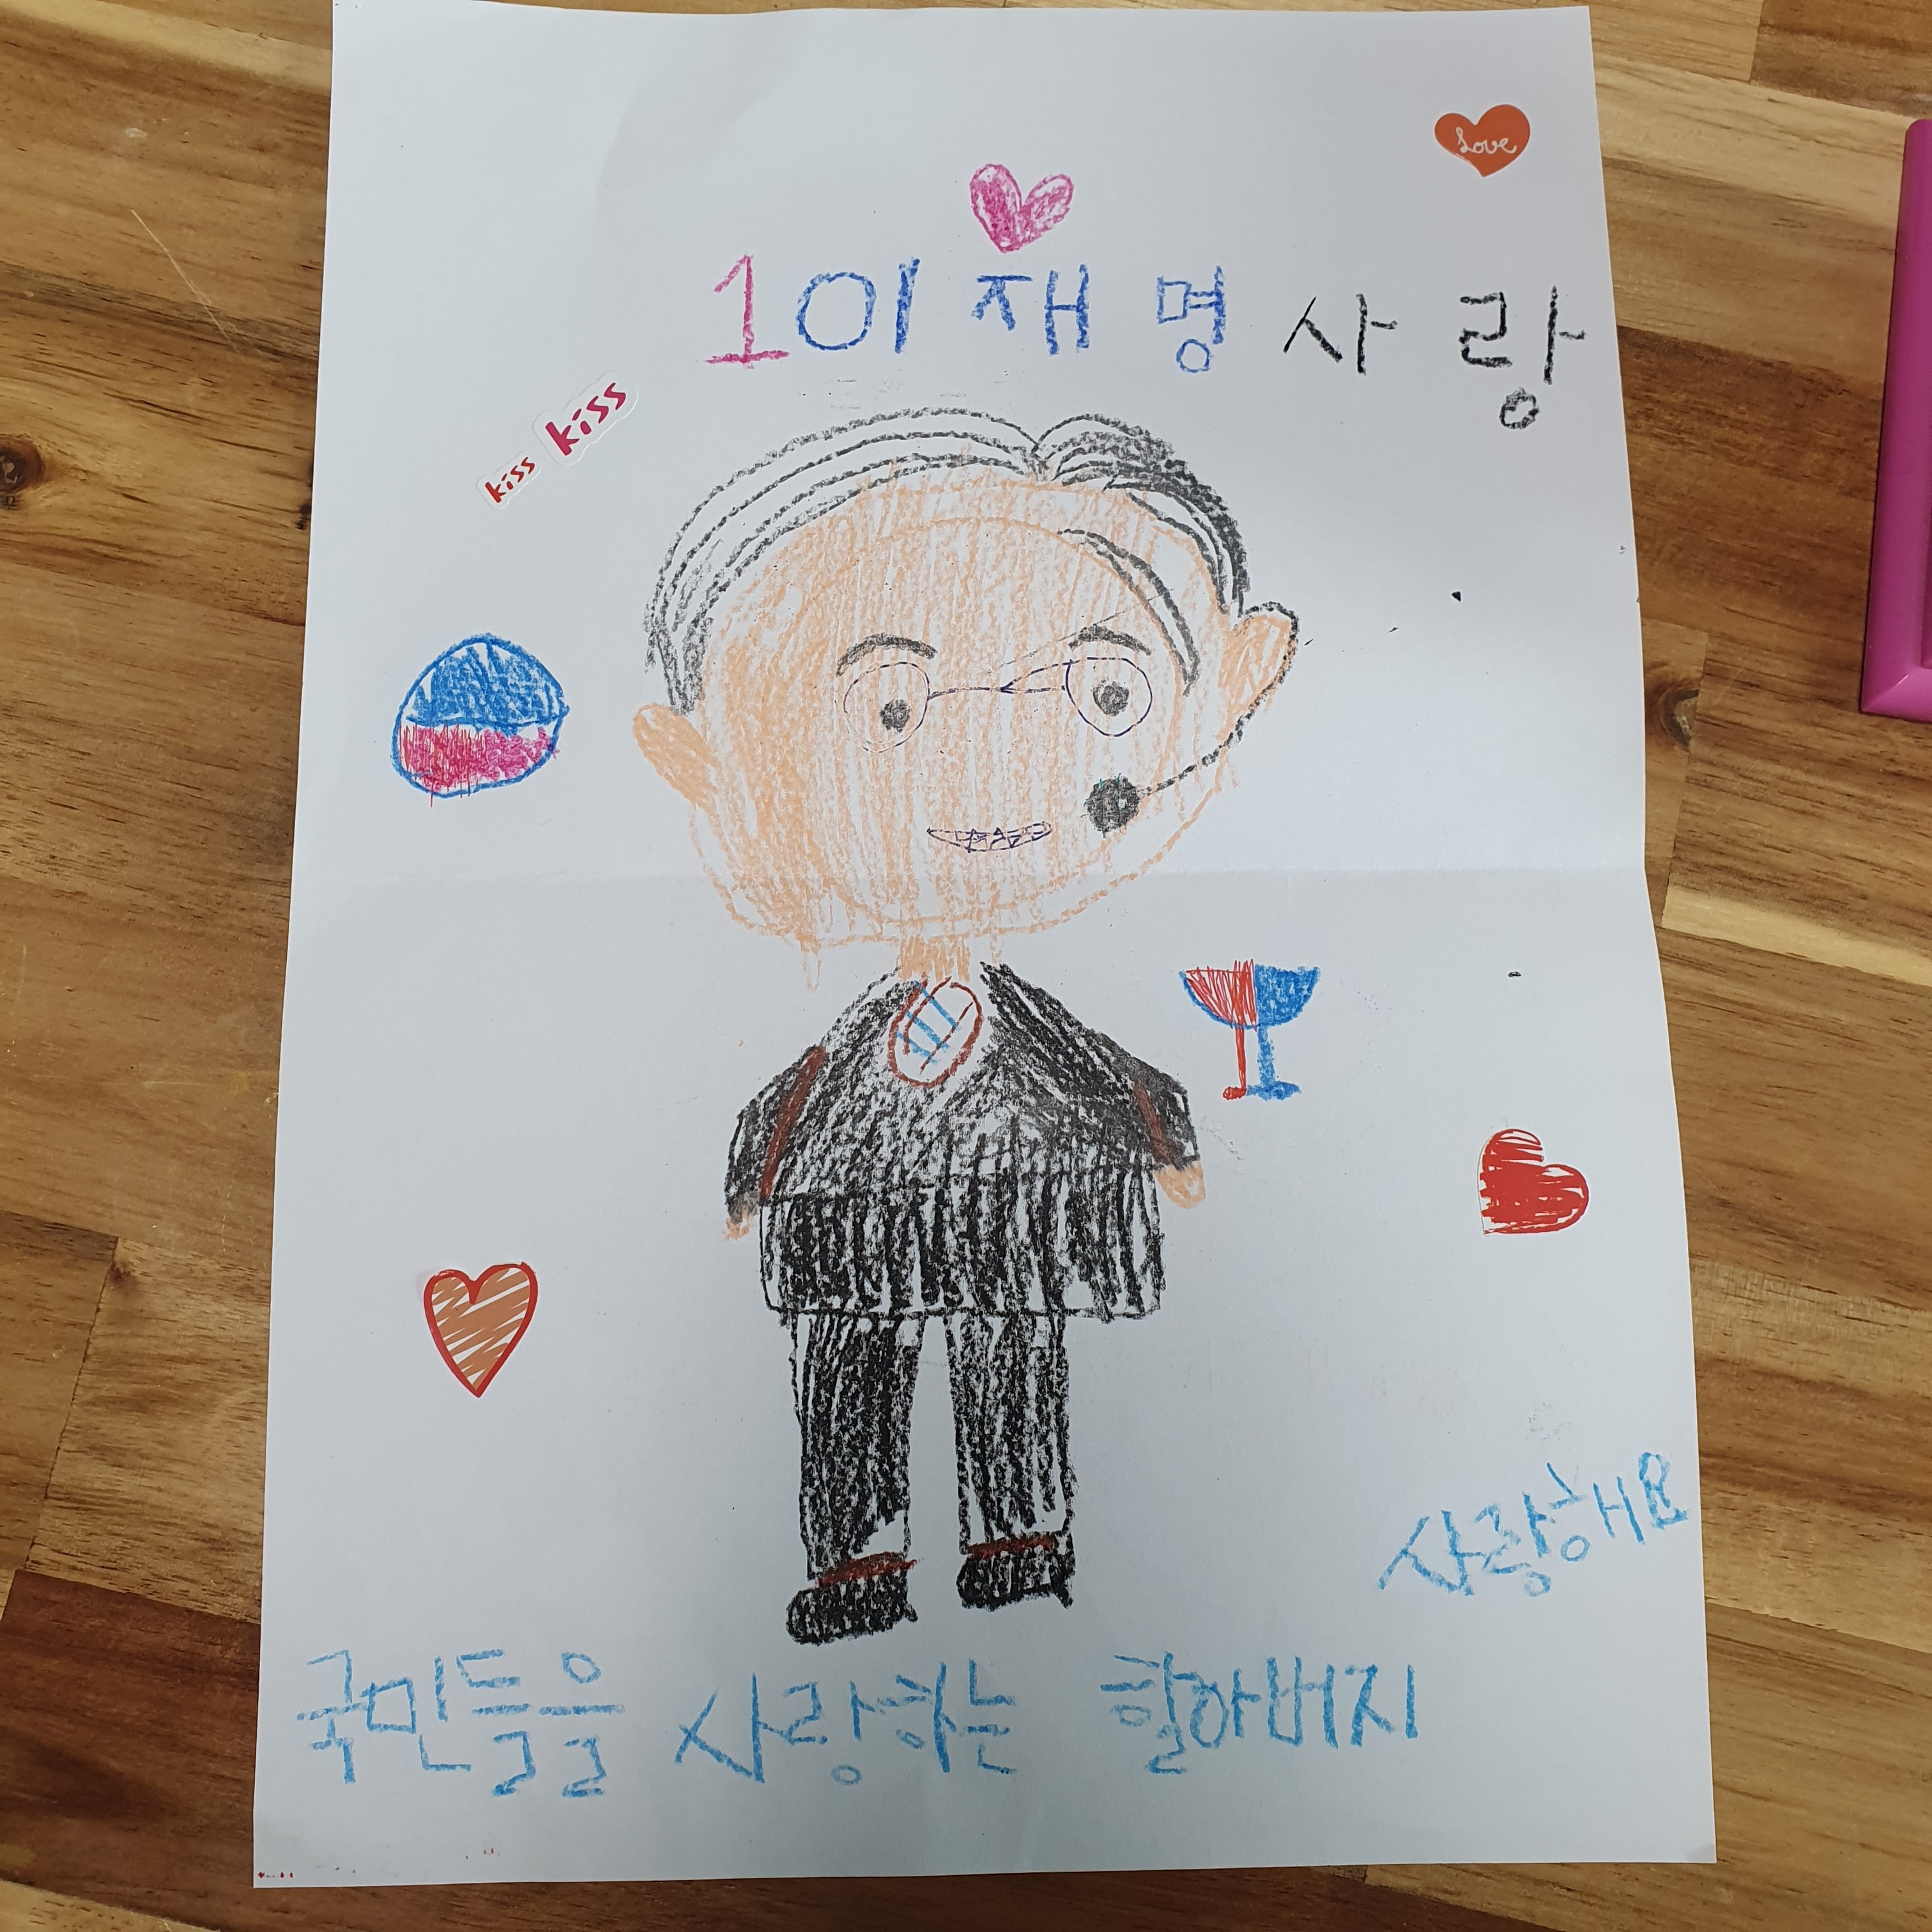 Love
1이재명사랑
kiss kiss
사랑해요
국민들을 사랑하는 할아버지